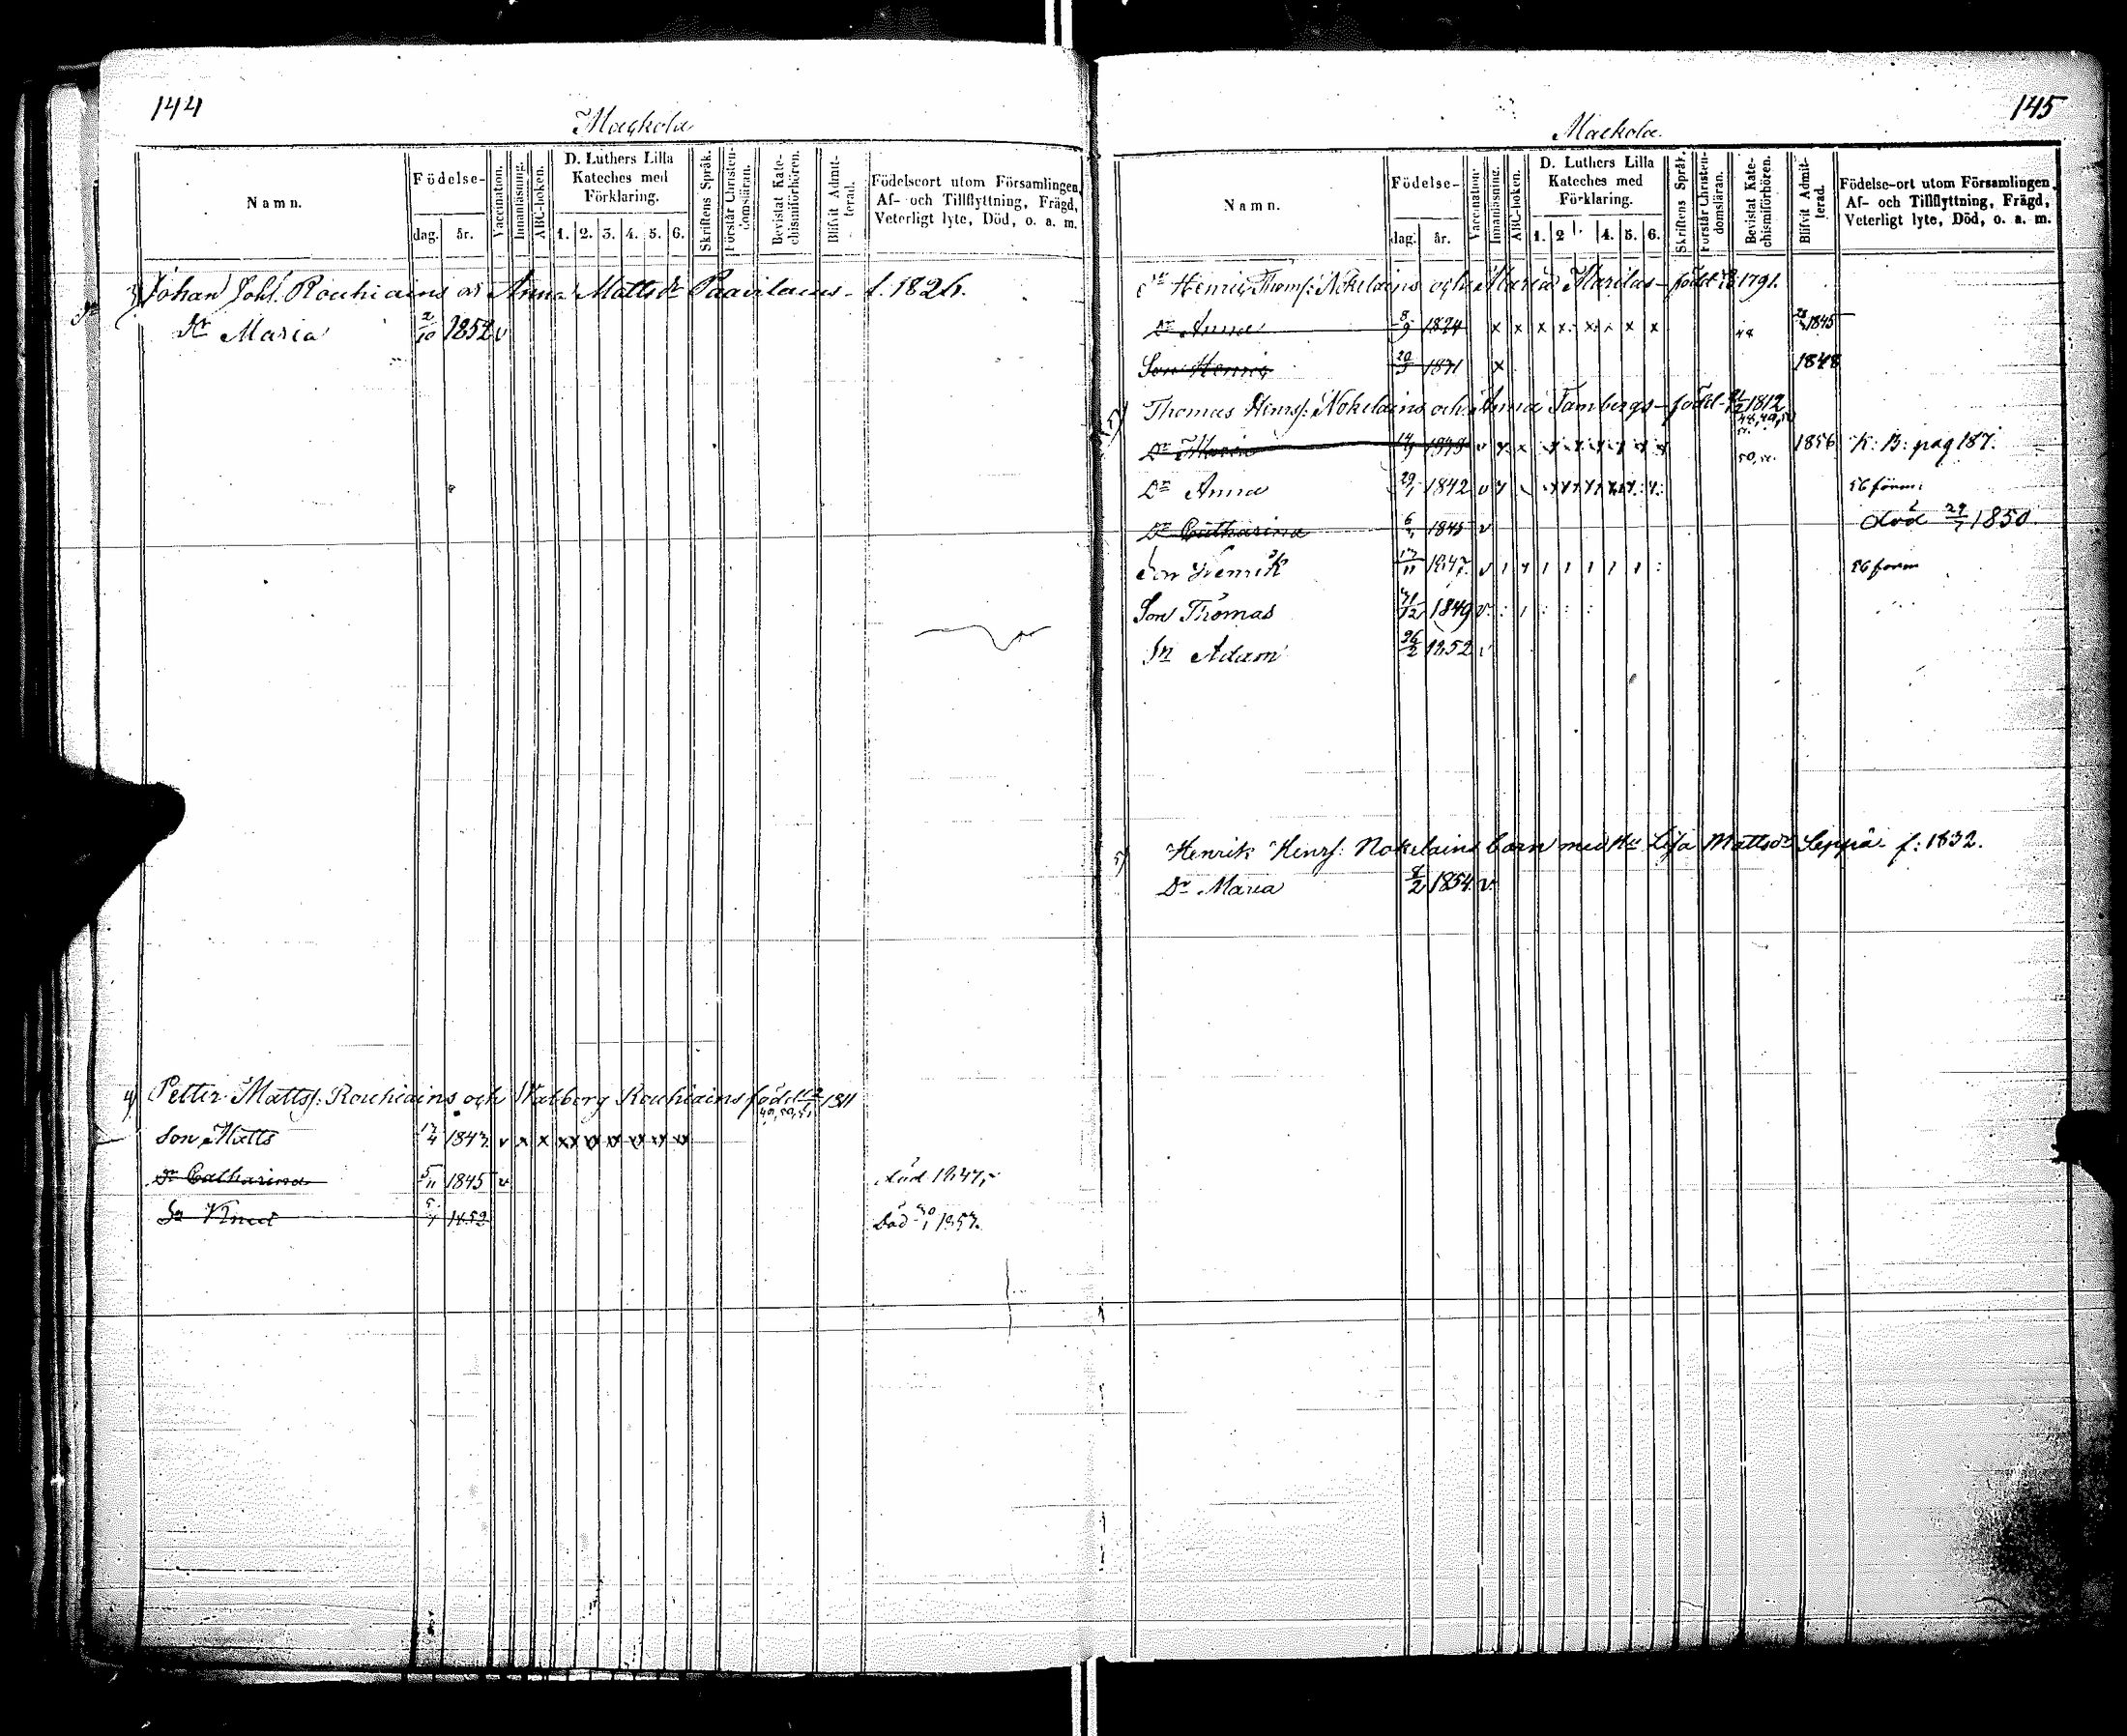 144
Maçkola
Namn.
Födelse-
dag. år.
Vaccination.
Innanläsning.
ABC-boken.
D. Luthers Lilla
Kateches med
Förklaring.
1. 2. 3. 4. 5. 6.
Skriftens Språk.
Förstår Christen-
domsläran.
Bevistat Kate-
chismiförhören.
Blifvit Admit-
terad.
Födelseort utom Församlingen,
Af- och Tillflyttning, Frägd,
Veterligt lyte, Död, o. a. m.
Johan Joh. Rouhiains Anna Mattsdr Paavilains f. 1826.
Dr Maria 2/10 1852 v
4) Petter Mattsf: Rouhiains och Walborg Rouhiains född 1811
49, 50, 51
Son Matts 17/4 1843 v x x xx
Dr Catharina 5/11 1845 v död 1847,
Sn Knut 5/1 1852 Död 30/1 1857.
145
Maekola.
Namn.
Födelse-
dag. år.
Vaccination.
Innanläsning.
ABC-boken.
D. Luthers Lilla
Kateches med
Förklaring.
1. 2 4. 5. 6.
Skriftens Språk.
Förstår Christen-
domsläran.
Bevistat Kate-
chismiförhören.
Blifvit Admit-
terad.
Födelse-ort utom Församlingen,
Af- och Tillflyttning, Frägd,
Veterligt lyte, Död, o. a. m.
Henric Thomf: Nokelains och Maria Marilas - född 1791.
Dr Anna 8/9 1824 x x x x x x x x 48 1845
Son Henric 20/5 1831 x 1848
5) Thomas Henrsf: Nokelains och Anna Tambergs - född 1812
48, 49, 50
Dr Maria 1838 v x x x x x x x x 50, 1856 K: B: pag 187.
Dr Anna 29/1 1842 v x 56 förm:
Dr Catharina 6/1 1845 v död 29/1 1850.
Son Henrik 17/11 1847. v 56 förm
Son Thomas 31/12 1849 v
Sn Adam 26/2 1852 v
5) Henrik Henrsf: Nokelains barn med Hu Lisa Mattsdr Seppä f: 1832.
Dr Maria 8/2 1854 v